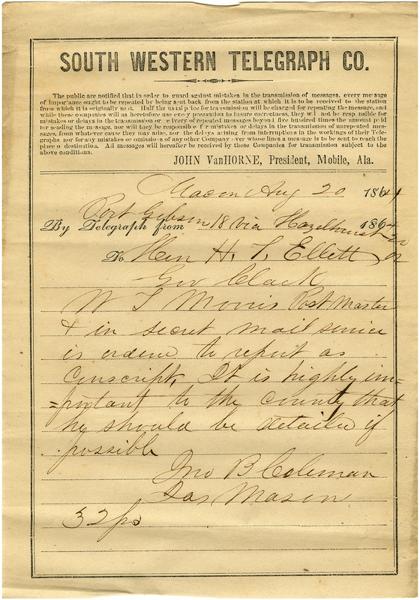 SOUTH WESTERN TELEGRAPH CO.
The public are notified that in order to guard against mistakes in the transmission of messages, every message
of importance ought to be repeated by being sent back from the station at which it is to be received to the station
from which it is originally sent. Half the usual price for transmission will be charged for repeating the message, and
while these companies will as heretofore use every precaution to insure correctness, they will not be responsible for
mistakes or delays in the transmission or delivery of repeated messages beyond five hundred times the amount paid
for sending the message, nor will they be responsible for mistakes or delays in the transmission of unrepeated mes-
sages, from whatever cause they may arise, nor for delays arising from interruptions in the workings of their Tele-
graphs nor for any mistakes or omissions of any other Company over whose lines a message is to be sent to reach the
place of destination. All messages will hereafter be received by these Companies for transmission subject to the
above conditions.
JOHN VanHORNE, President, Mobile, Ala.
Macon Aug 20 1864
By Telegraph from Port Gibson 18 via Hazlehurst 186
To Hon H. T. Ellett or
Gov Clark
W T Morris Post Master
& in secret mail service
is ordered to report as
Conscript. It is highly im=
=portant to the county that
he should be detailed if
possible
Jno B Coleman
Jas Mason
32 pd